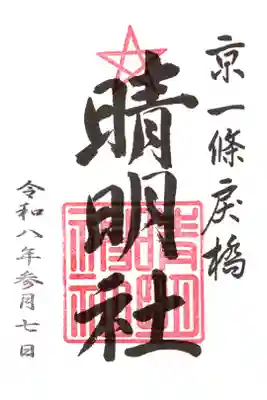 京一條戻橋
晴明社
晴明神社
令和八年参月七日